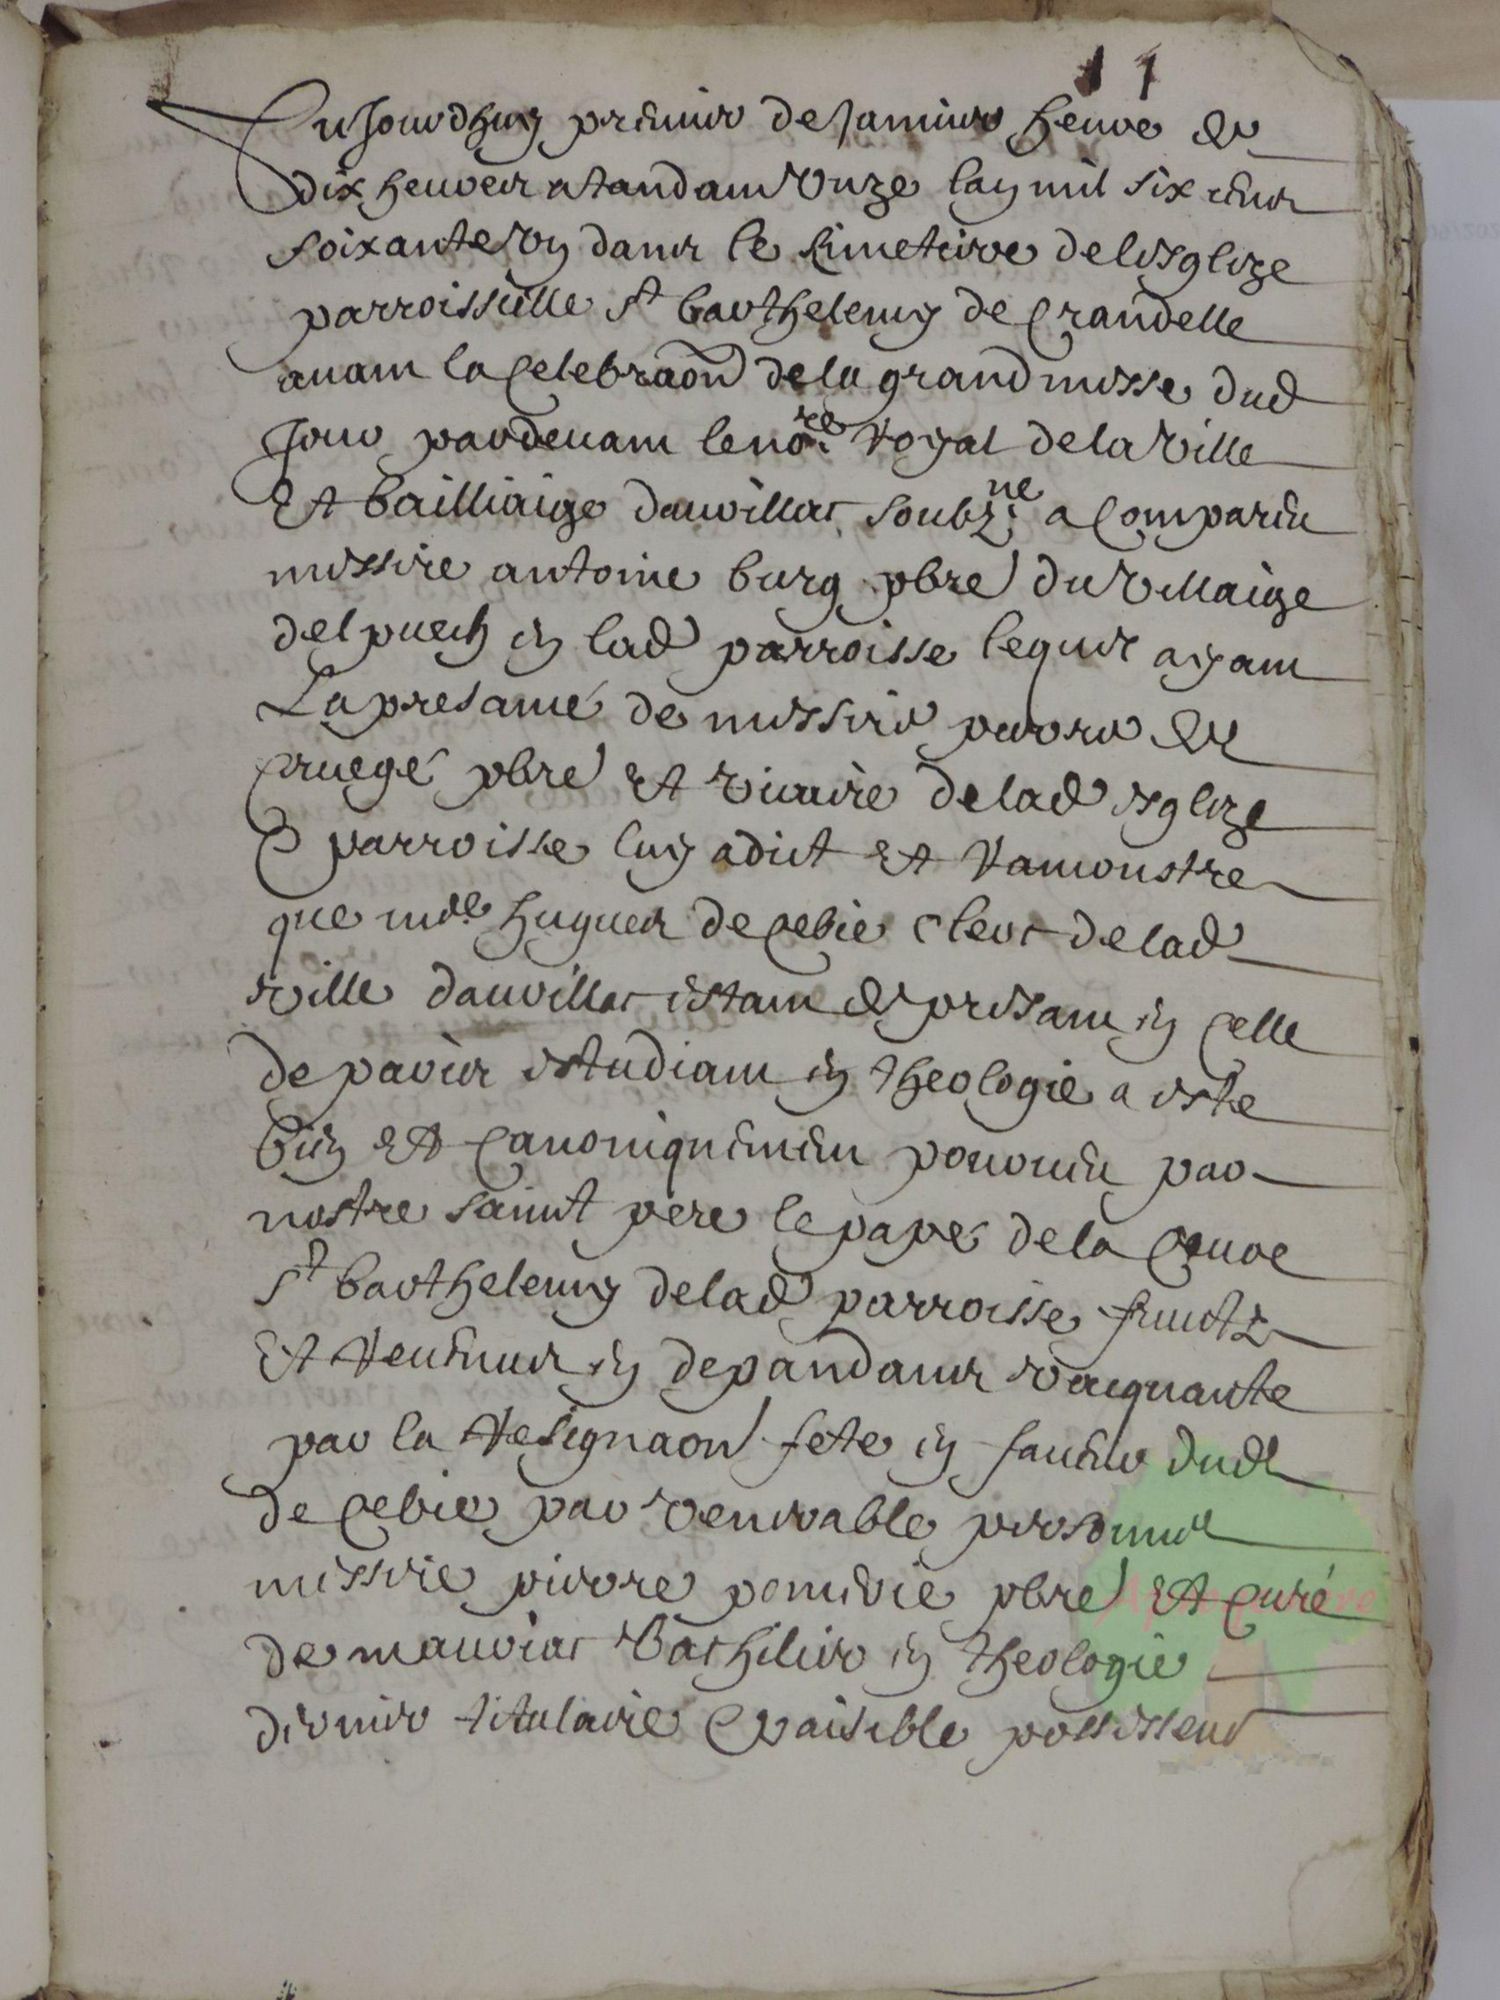 11
Aujourdhuy premier de Janvier heure de
dix heures atandant unze lan mil six cens
soixante un dans le simetiere de lesglize
parroissielle st barthelemy de Crandelle
avant la celebraon de la grand messe dud
Jour par devant le nore. royal de la ville
et bailliaige daurillac soubzne. a comparu
messire antoine burg pbre du villaige
delpuech en lad parroisse lequel ayant
la presance de messire pierre de
Cruege pbre et vicaire de lad esglize
& parroisse luy a dict et ramonstre
que mre hugues de Cebie clerc de lad
ville daurillac estant de presant en celle
de paris estudiant en theologie a este
bien et canoniquement pourveu par
nostre sainct pere le pape de la Cure
st barthelemy de lad parroisse fruictz
et revenus en depandans vacquante
par la resignaon fete en faveur dud
de Cebie par venerable personne
messire pierre pomerie pbre et curé
de mauriac bachilier en theologie
dernier titulaire & paisible possesseur